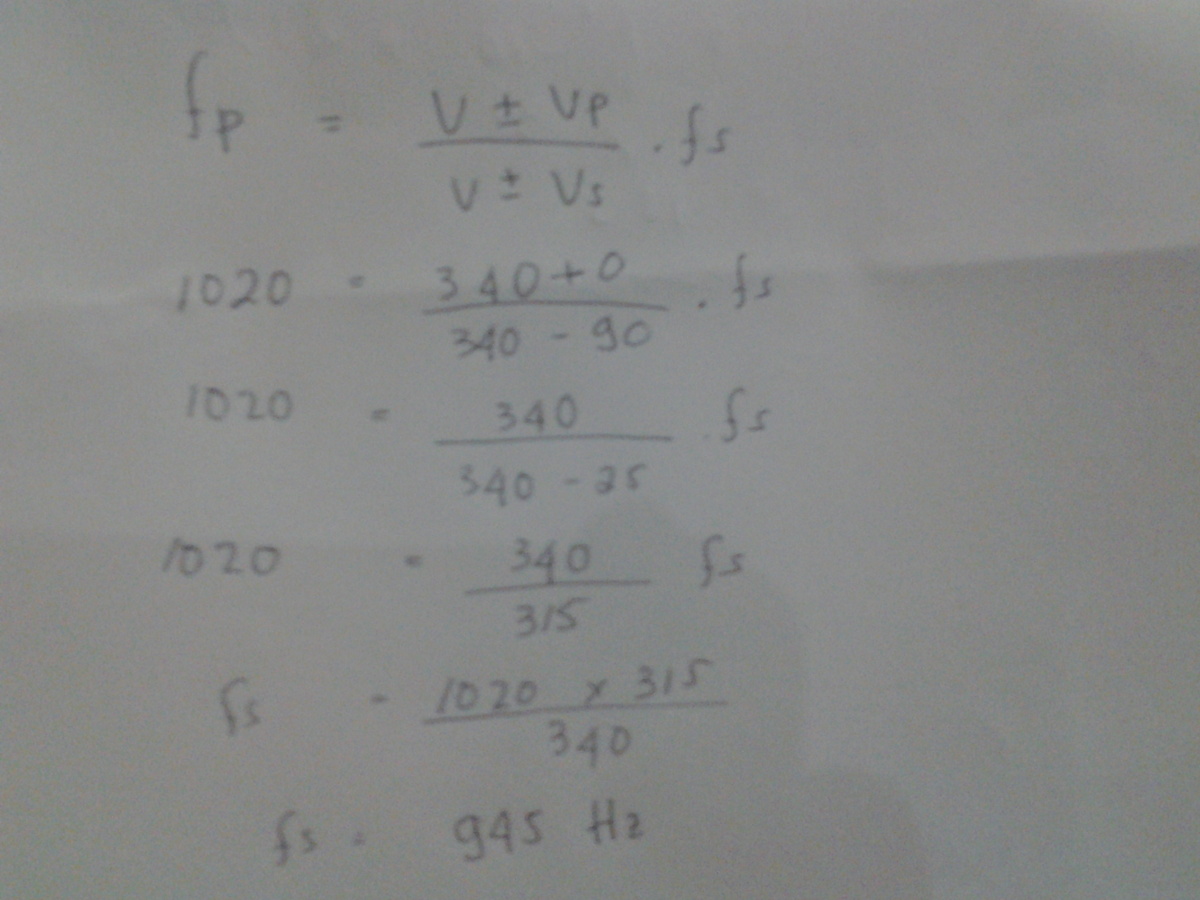 fp = V ± Vp / V ± Vs . fs
1020 = 340 + 0 / 340 - 90 . fs
1020 = 340 / 340 - 25 . fs
1020 = 340 / 315 fs
fs = 1020 x 315 / 340
fs = 945 Hz